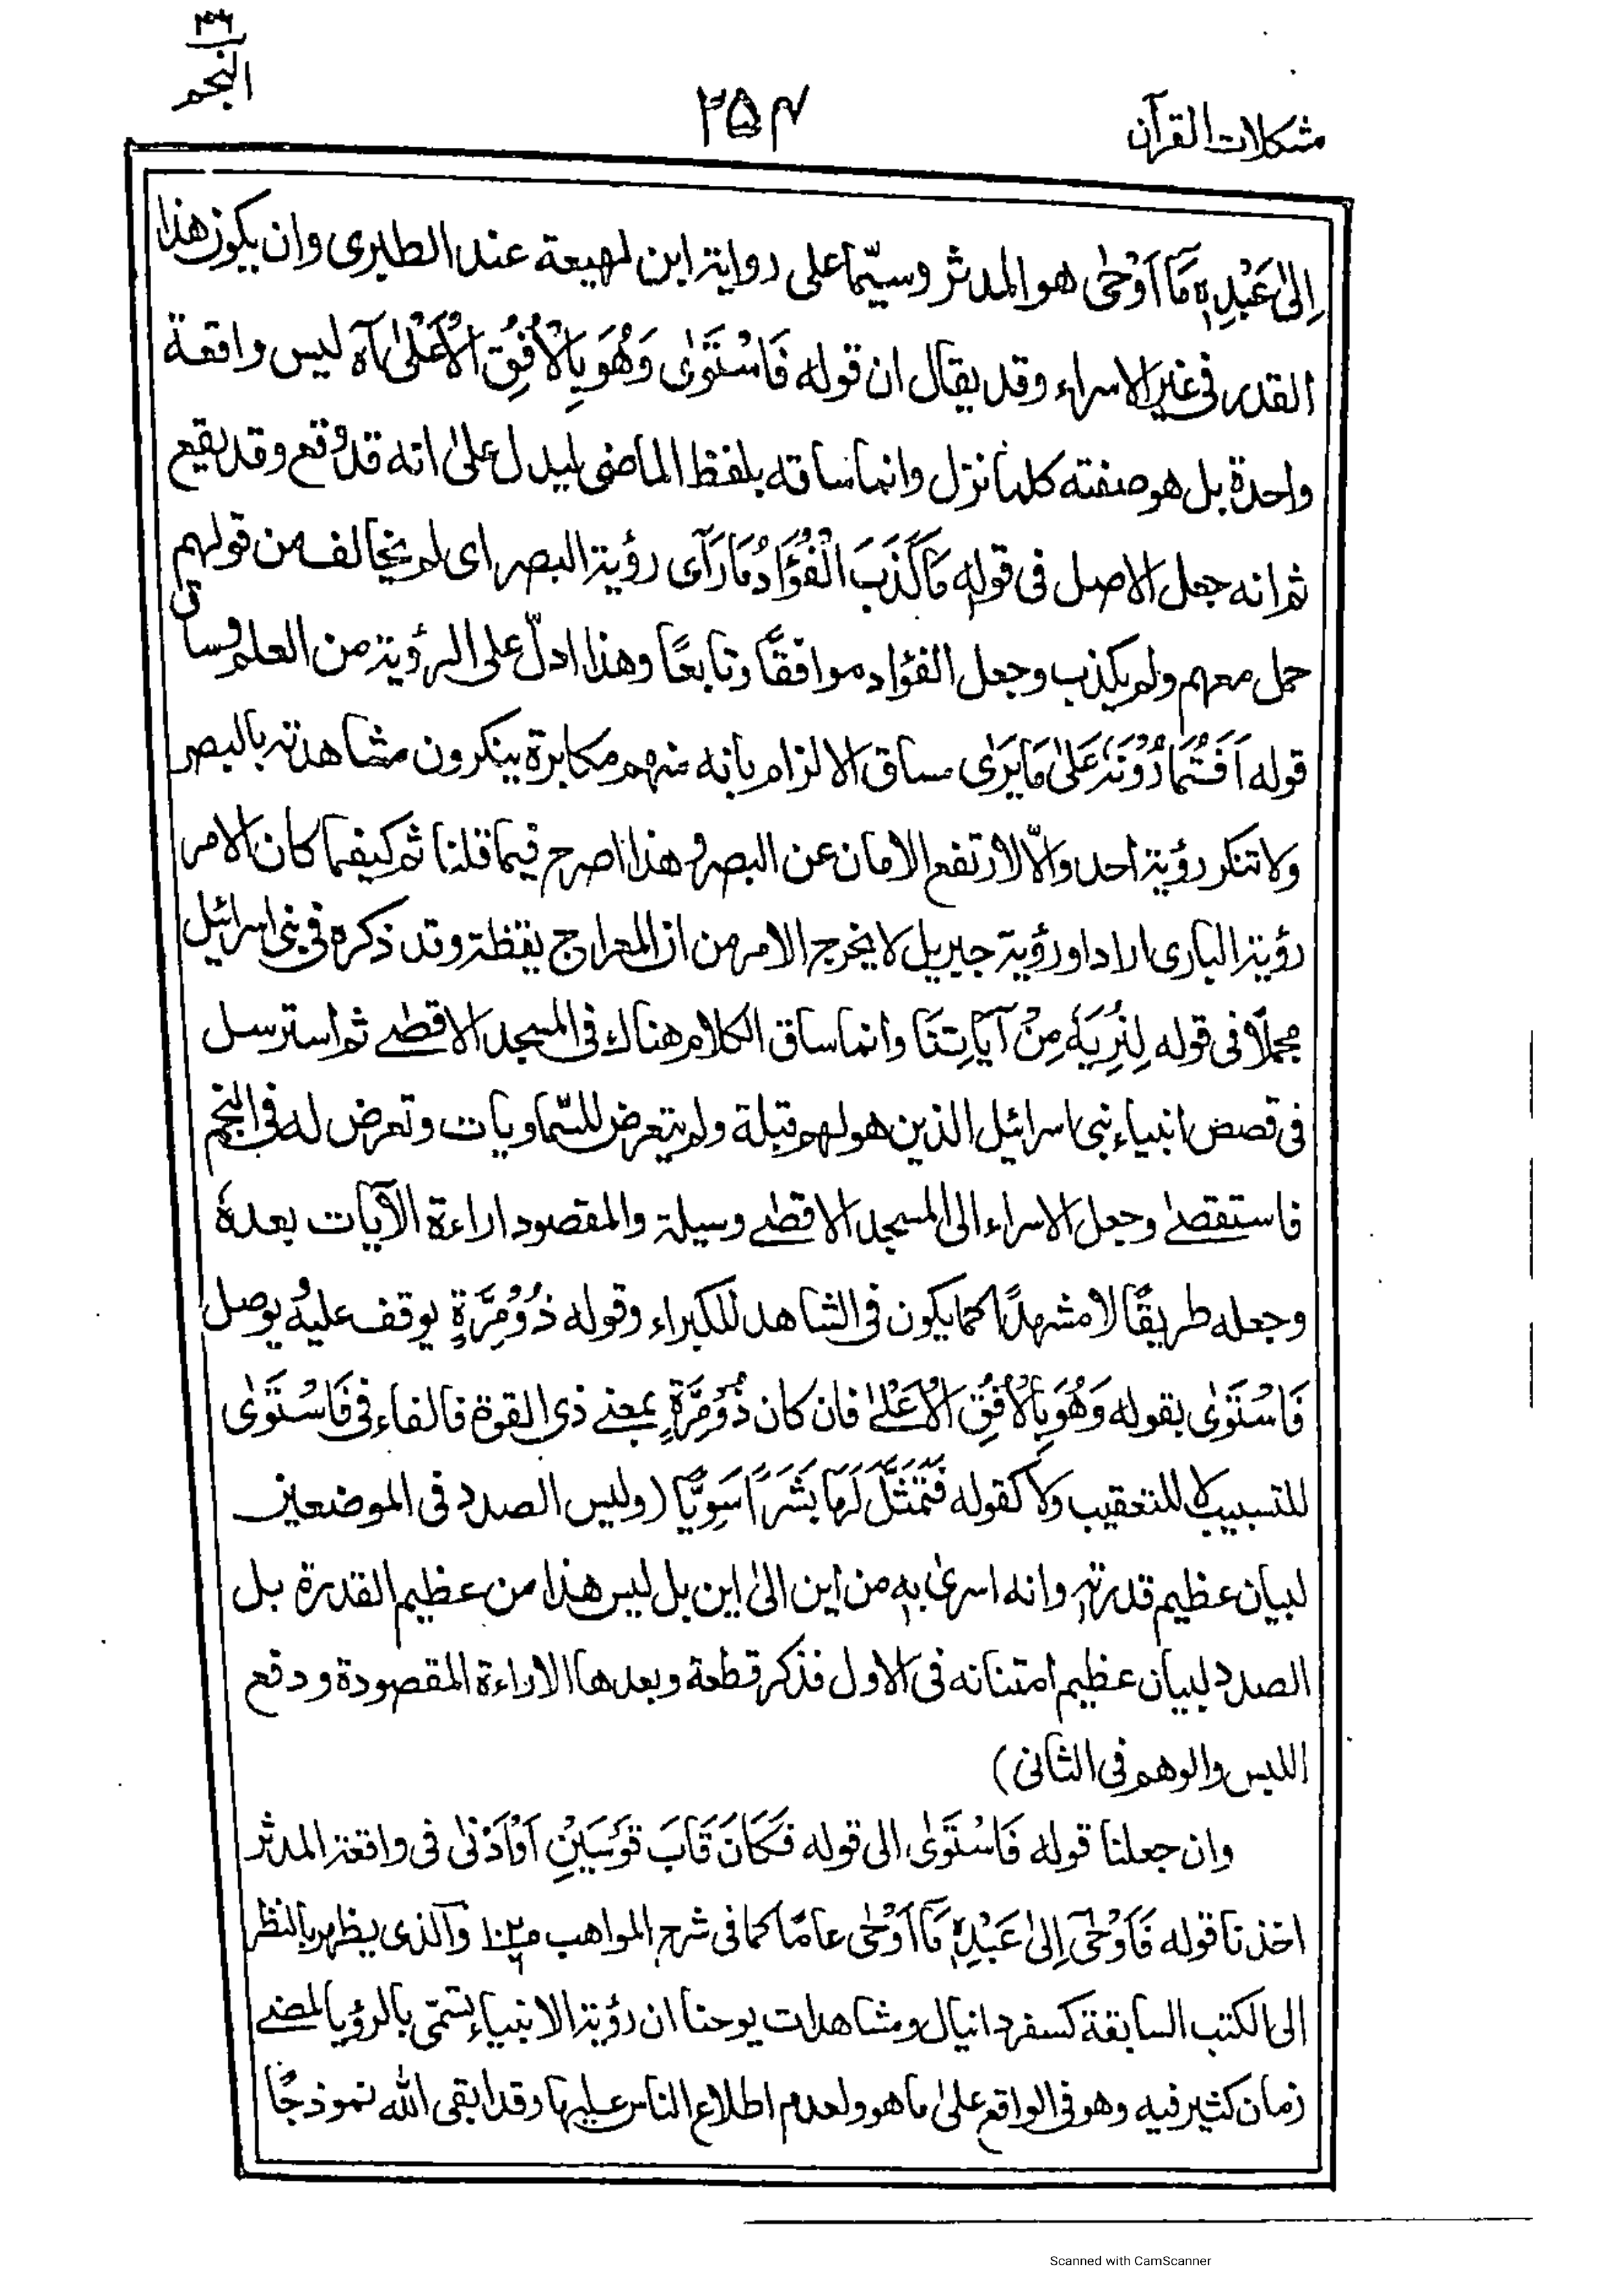 النجم
مشكلات القرآن
إِلىٰ عَبْدِهٖ مَآ اَوْحٰى هو المدثر وسيّما على رواية ابن لهيعة عند الطبرى وان يكون هذا
القدر فى غير الاسراء وقد يقال ان قوله فَاسْتَوٰى وَهُوَ بِالْاُفُقِ الْاَعْلىٰ اٰه ليس واقعة
واحدة بل هو صفته كلما نزل وانما ساقه بلفظ الماضى ليدل علىٰ انه قد وقع وقد يقيع
ثم انه جعل الاصل فى قولهٖ مَا كَذَبَ الْفُؤَادُ مَا رَآى رؤية البصر اى لم يخالف من قولهم
حمل معهم ولم يكذب وجعل الفؤاد موافقًا وتابعًا وهذا ادلّ على الرؤية من العلم وساق
قوله اَفَتُمَارُوْنَهٗ عَلىٰ مَا يَرٰى مساق الالزام بانه منهم مكابرة ينكرون مشاهدته بالبصر
ولا تنكر رؤية احد والّا لارتفع الامان عن البصر وهذا اصرح فيما قلنا ثم كيفما كان الامر
رؤية البارى اراد او رؤية جبريل لا يخرج الامر من ان المعراج يقظة وقد ذكره فى بنى اسرائيل
مجملًا فى قوله لِنُرِيَهٗ مِنْ آيَاتِنَا وانما ساق الكلام هناك فى المسجد الاقصٰے ثم استرسل
فى قصص انبياء بنى اسرائيل الذين هو لهم قبلة ولم يتعرض للسّماويات وتعرض له فى النجم
فاستقصٰے وجعل الاسراء الى المسجد الاقصٰے وسيلة والمقصود اراءة الآيات بعدهٗ
وجعله طريقًا لا مشهدًا كما يكون فى الشاهد للكبراء وقوله ذُوْ مِرَّةٍ يوقف عليه ويوصل
فَاسْتَوٰى بقوله وَهُوَ بِالْاُفُقِ الْاَعْلےٰ فان كان ذُوْ مِرَّةٍ بمعنے ذى القوة فالفاء فى فَاسْتَوٰى
للتسبيب لا للتعقيب ولا كقوله فَتَمَثَّلَ لَهَا بَشَرًا سَوِيًّا (وليس الصدد فى الموضعين
لبيان عظيم قدرتهٖ وانه اسرىٰ بهٖ من اين الىٰ اين بل ليس هذا من عظيم القدرة بل
الصدد لبيان عظيم امتنانه فى الاول فذكر قطعة وبعدها الاراءة المقصودة ودفع
اللبس والوهم فى الثانى)
وان جعلنا قوله فَاسْتَوٰى الى قوله فَكَانَ قَابَ قَوْسَيْنِ اَوْ اَدْنٰى فى واقعة المدثر
اخذنا قوله فَاَوْحٰى اِلىٰ عَبْدِهٖ مَآ اَوْحٰى عامًّا كما فى شرح المواهب والذى يظهر بالنظر
الى الكتب السابقة كسفر دانيال ومشاهدات يوحنا ان رؤية الانبياء يسمّى بالرؤيا لمضے
زمان كثير فيه وهو فى الواقع علىٰ ما هو ولعدم اطلاع الناس عليها وقد ابقى الله نموذجًا
Scanned with CamScanner